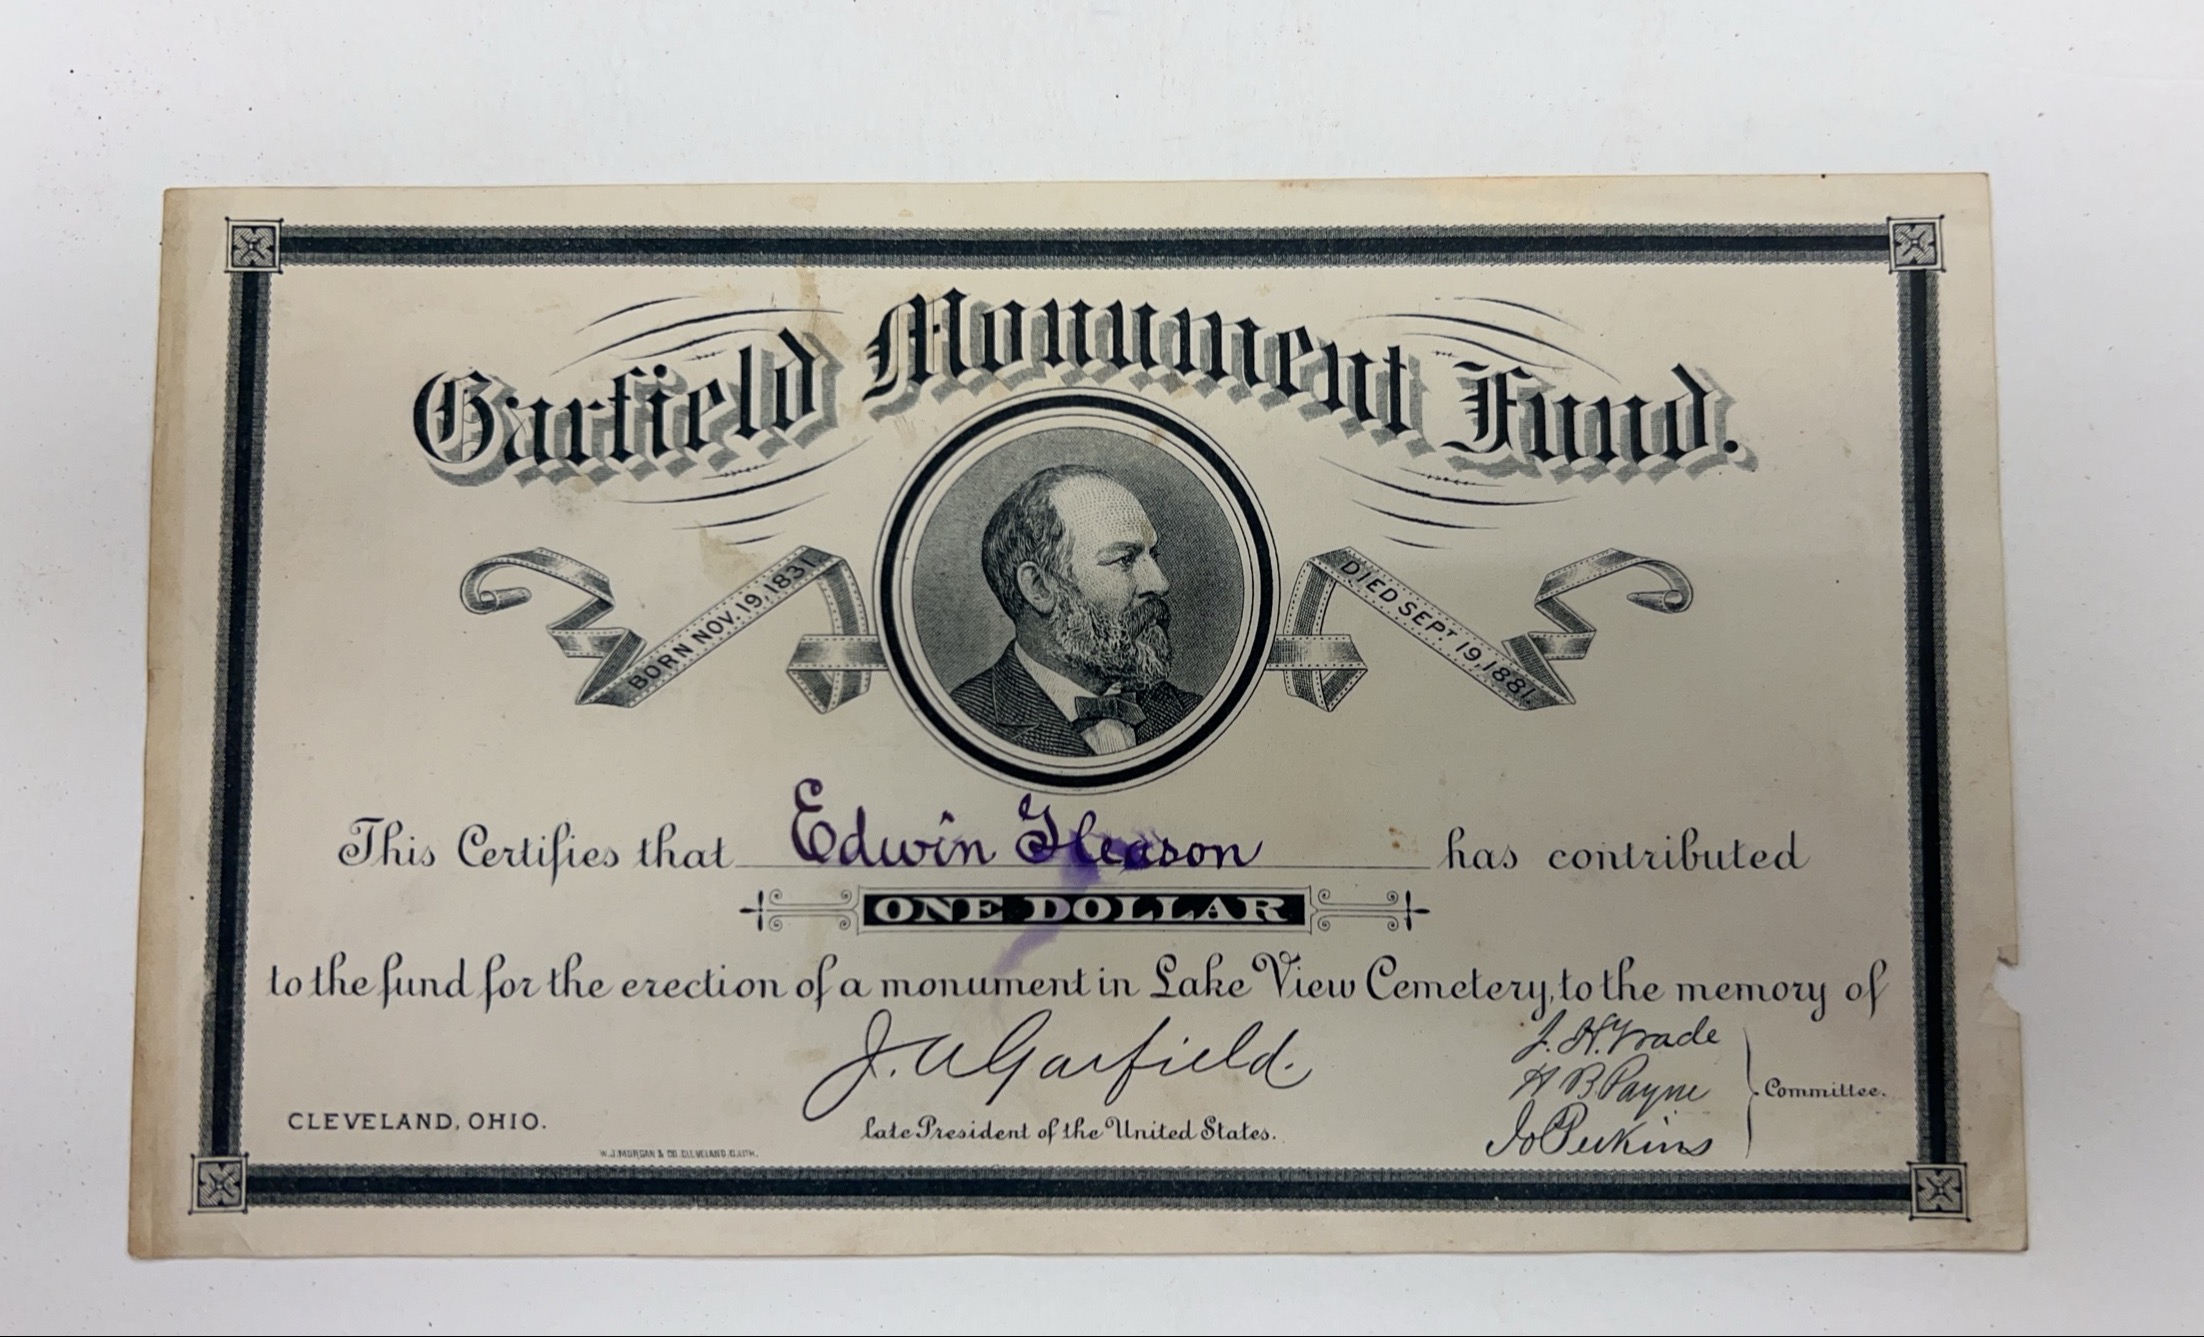 Garfield Monument Fund.
BORN NOV. 19, 1831
DIED SEPT 19, 1881.
This Certifies that Edwin Gleason has contributed
ONE DOLLAR
to the fund for the erection of a monument in Lake View Cemetery, to the memory of
J. A Garfield.
late President of the United States.
J. H. Wade
H B Payne
Jo Perkins
Committee.
CLEVELAND, OHIO.
W. J. MORGAN & CO. CLEVELAND, O. LITH.